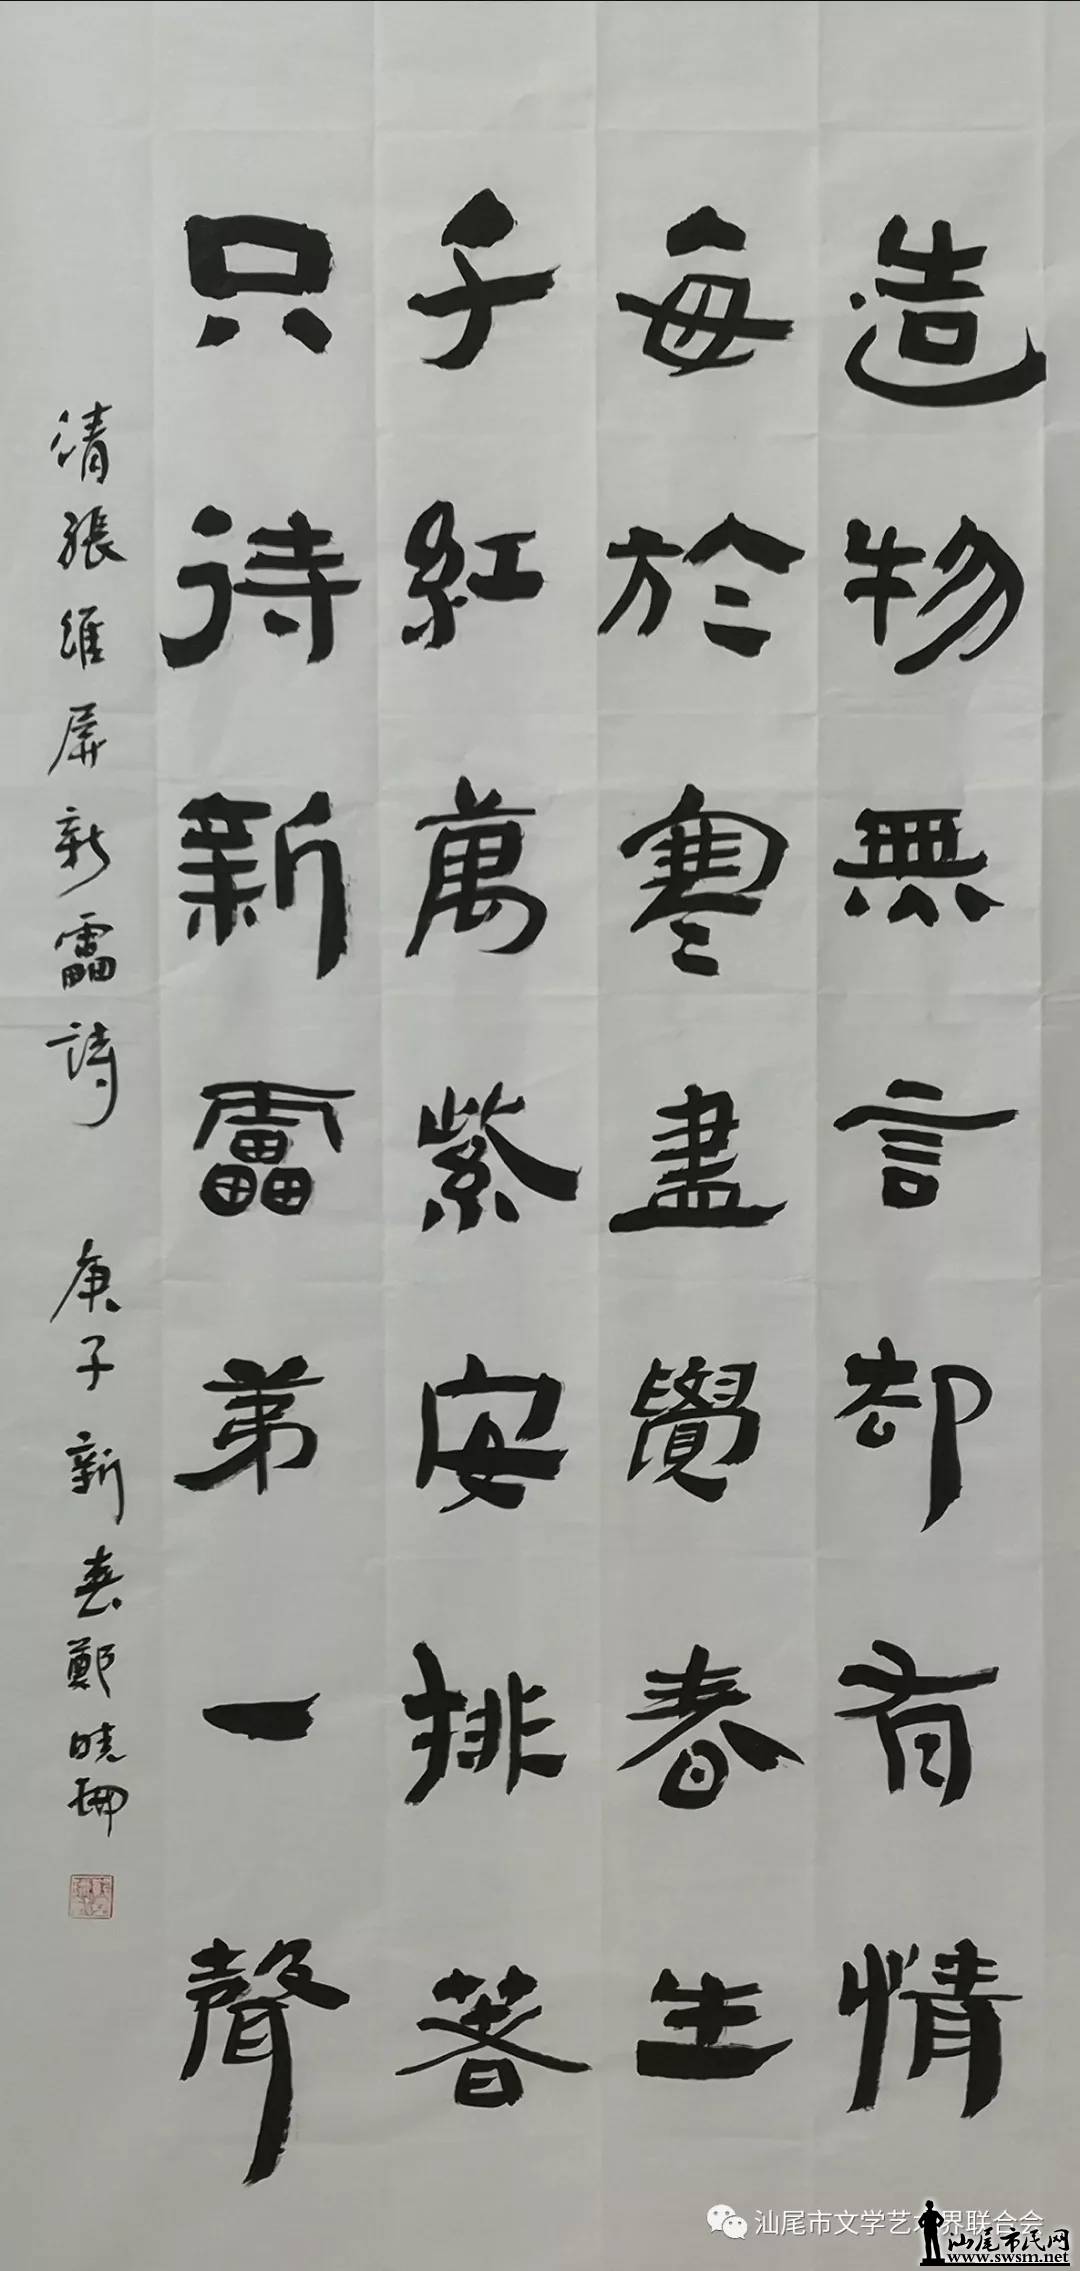 造物無言却有情
每於寒盡覺春生
千紅萬紫安排著
只待新靁第一聲
清張維屏新靁詩 庚子新春鄭曉珊
汕尾市文学艺术界联合会
汕尾市民网
www.swsm.net